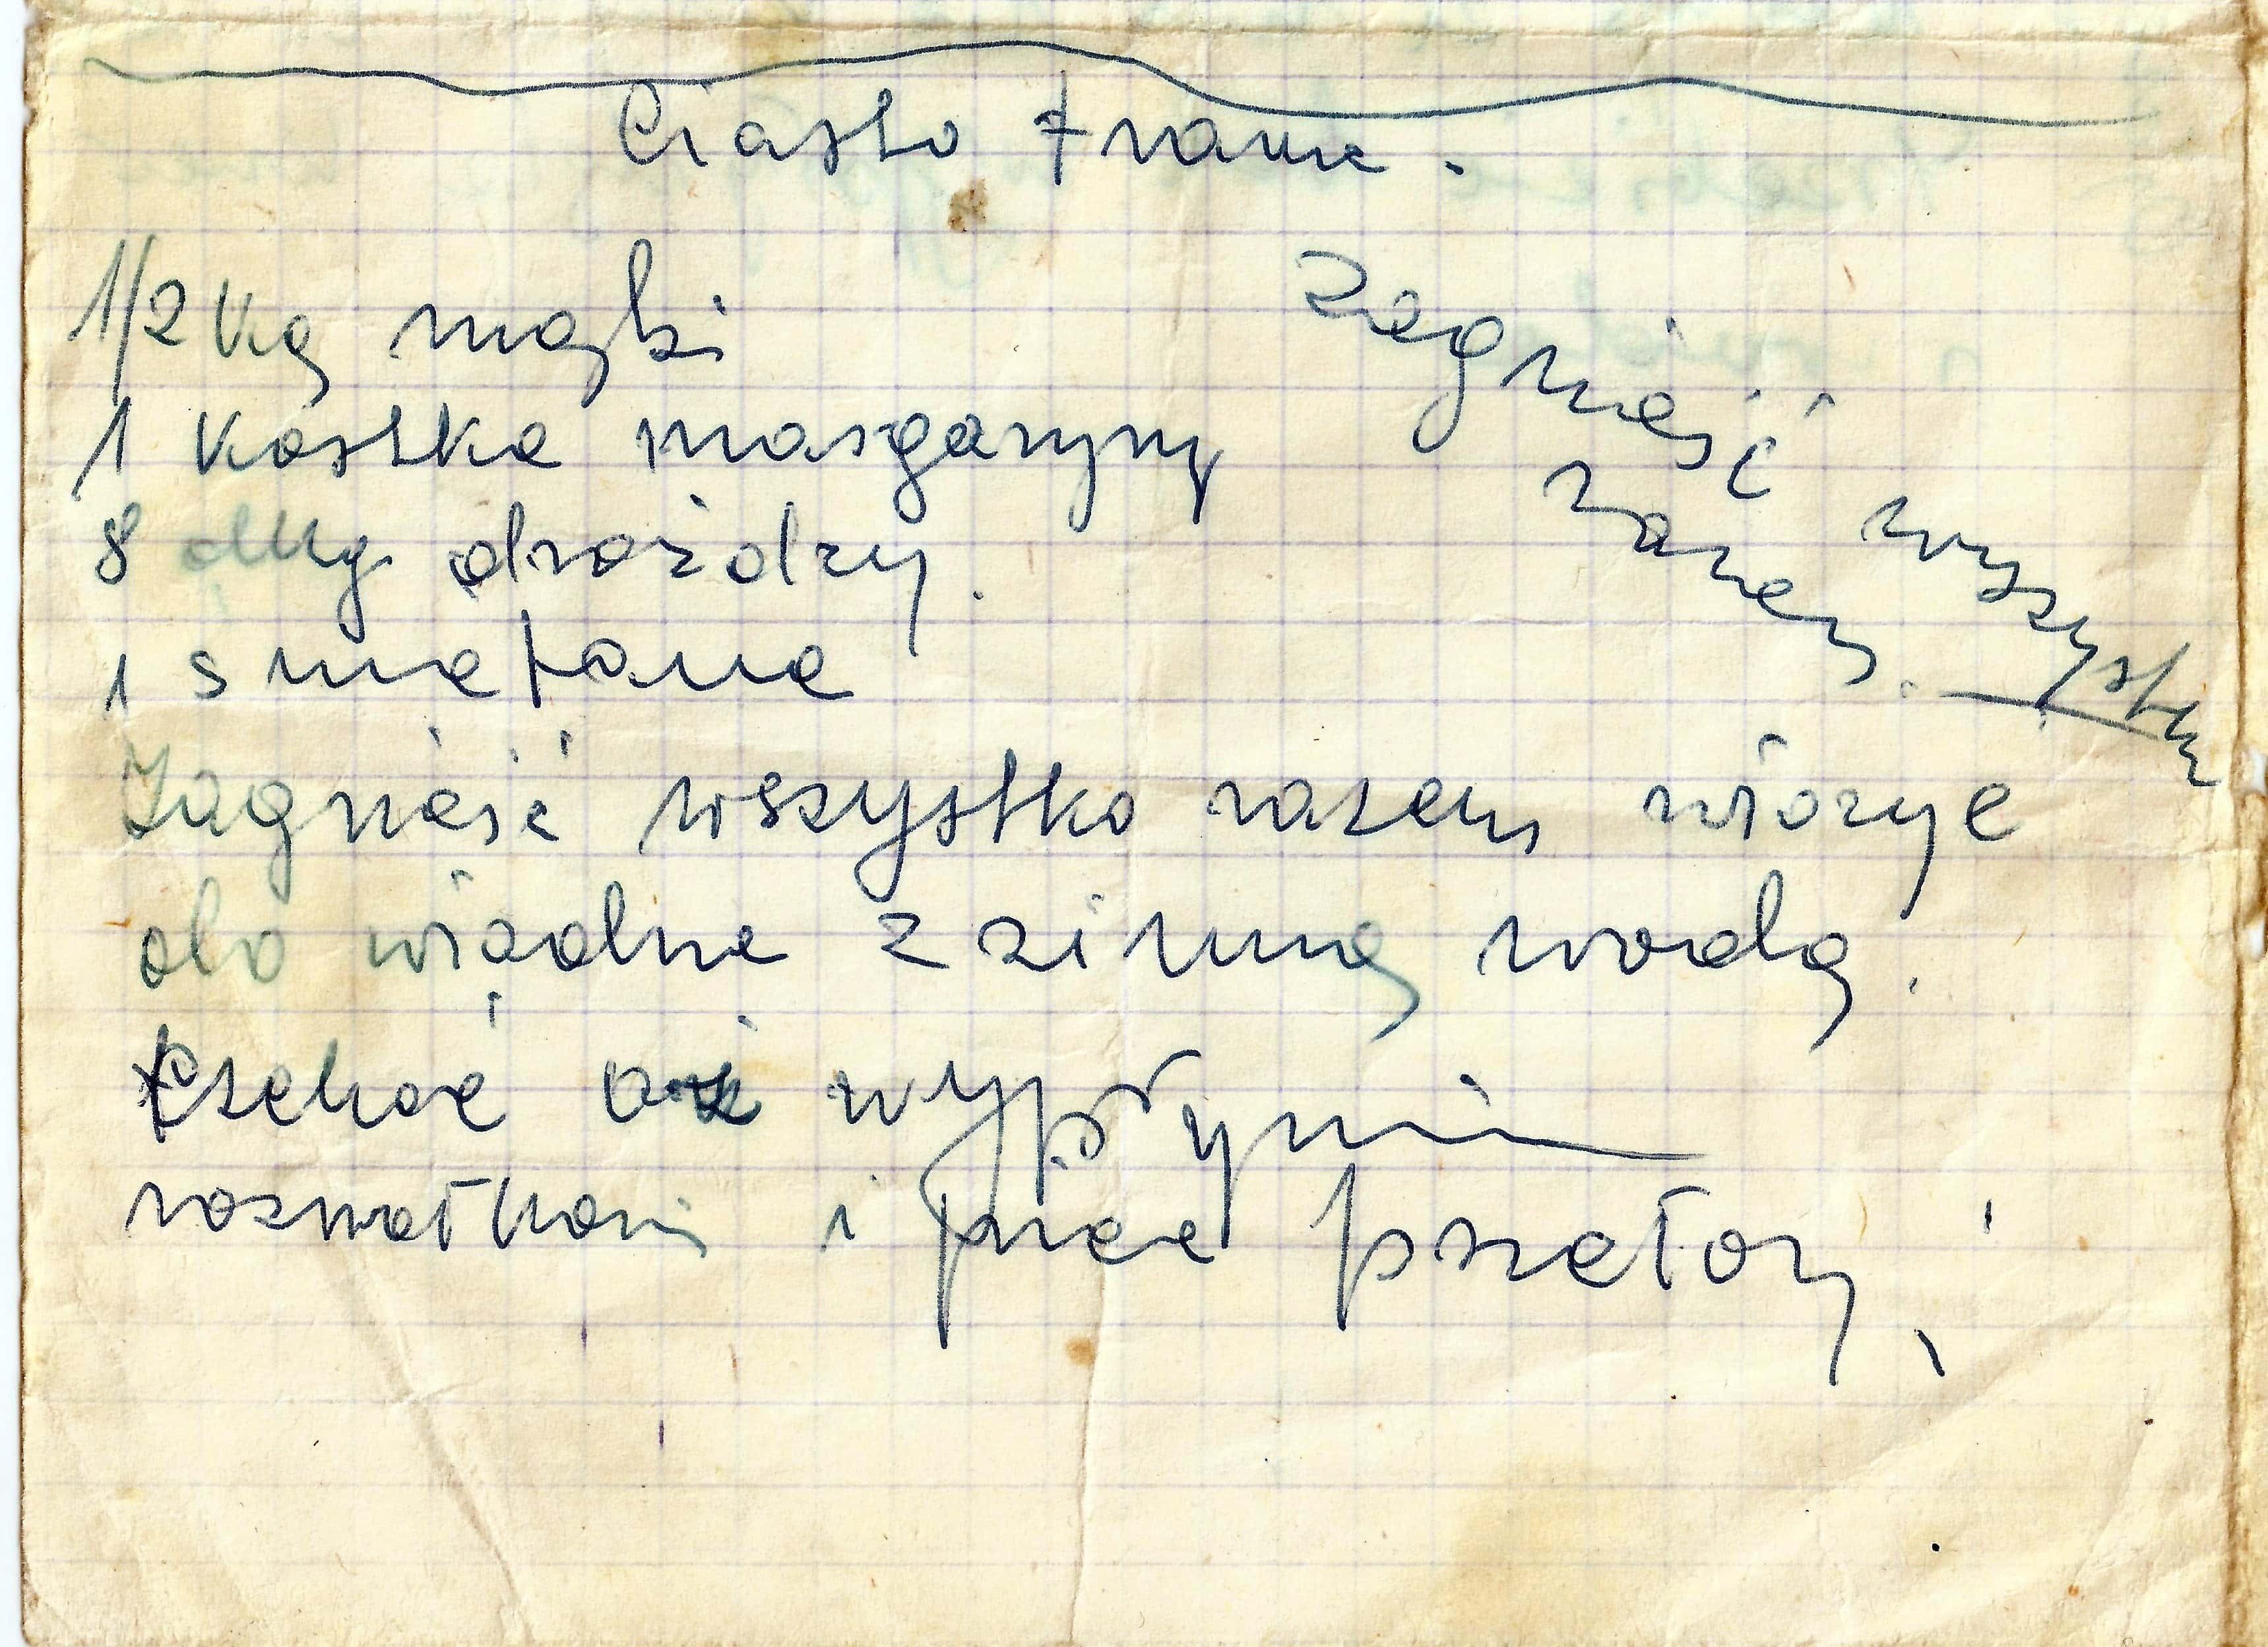 Ciasto Franc.
1/2 kg mąki
1 kostka margaryny
8 dkg drożdży.
1 smetana
Zagnieść wszystko
razem.
Zagnieść wszystko razem włozyc
do wiadra z zimną wodą.
Czekać aż wypłynie
rozwałkować i piec